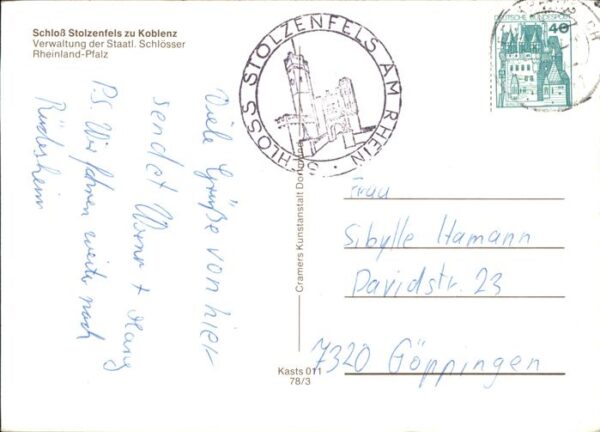 Schloß Stolzenfels zu Koblenz
Verwaltung der Staatl. Schlösser
Rheinland-Pfalz
SCHLOSS STOLZENFELS AM RHEIN
DEUTSCHE BUNDESPOST
40
Viele Grüße von hier
sendet Werner + Hans
P.S. Wir fahren weiter nach
Rüdesheim
Cramers Kunstanstalt Dortmund
Kasts 011
78/3
Frau
Sibylle Hamann
Davidstr. 23
7320 Göppingen